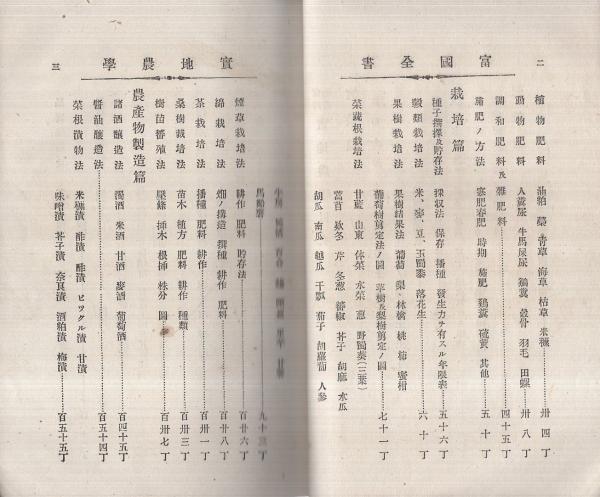 書全國富
二
植物肥料 油粕 藁 青草 海草 枯草 米穅……卅四丁
動物肥料 人糞尿 牛馬尿屎 鷄糞 蠶骨 羽毛 田螺……卅八丁
調和肥料及雜肥料……四十五丁
施肥ノ方法 寒肥春肥 時期 施肥 鷄糞 硫黃 其他……五十丁
栽培篇
種子撰擇及貯存法 採収法 保存 播種 發生力ヲ有スル年限表……五十六丁
穀類栽培法 米、麥、豆、玉蜀黍 落花生……六十丁
果樹栽培法 果樹結果法 葡萄 梨、林檎 桃 柿 蜜柑
葡萄樹剪定法ノ圖 苹樹及梨樹剪定ノ圖……七十一丁
菜蔬根栽培法 甘藍 山東 体菜 水菜 葱 野蜀葵(三葉)
萵苣 欵冬 芹 冬葱 蕃椒 芥子 胡麻 水瓜
胡瓜 南瓜 越瓜 干瓢 茄子 胡蘿蔔 人參
學農地實
三
九十三丁
煙草栽培法 耕作 肥料 貯存法……百廿六丁
綿栽培法 畑ノ搆造 撰種 耕作 肥料……百廿八丁
茶栽培法 播種 肥料 耕作……百卅一丁
桑樹栽培法 苗木 植方 肥料 耕作 種類……百卅三丁
樹苗蕃殖法 壓條 挿木 根挿 株分 圖……百卅七丁
農產物製造篇
諸酒釀造法 濁酒 米酒 甘酒 麥酒 葡萄酒……百四十五丁
醬油釀造法……百五十四丁
菜根漬物法 米糠漬 酢漬 酢漬 ピックル漬 甘漬
味噌漬 芥子漬 奈良漬 酒粕漬 梅漬……百五十五丁